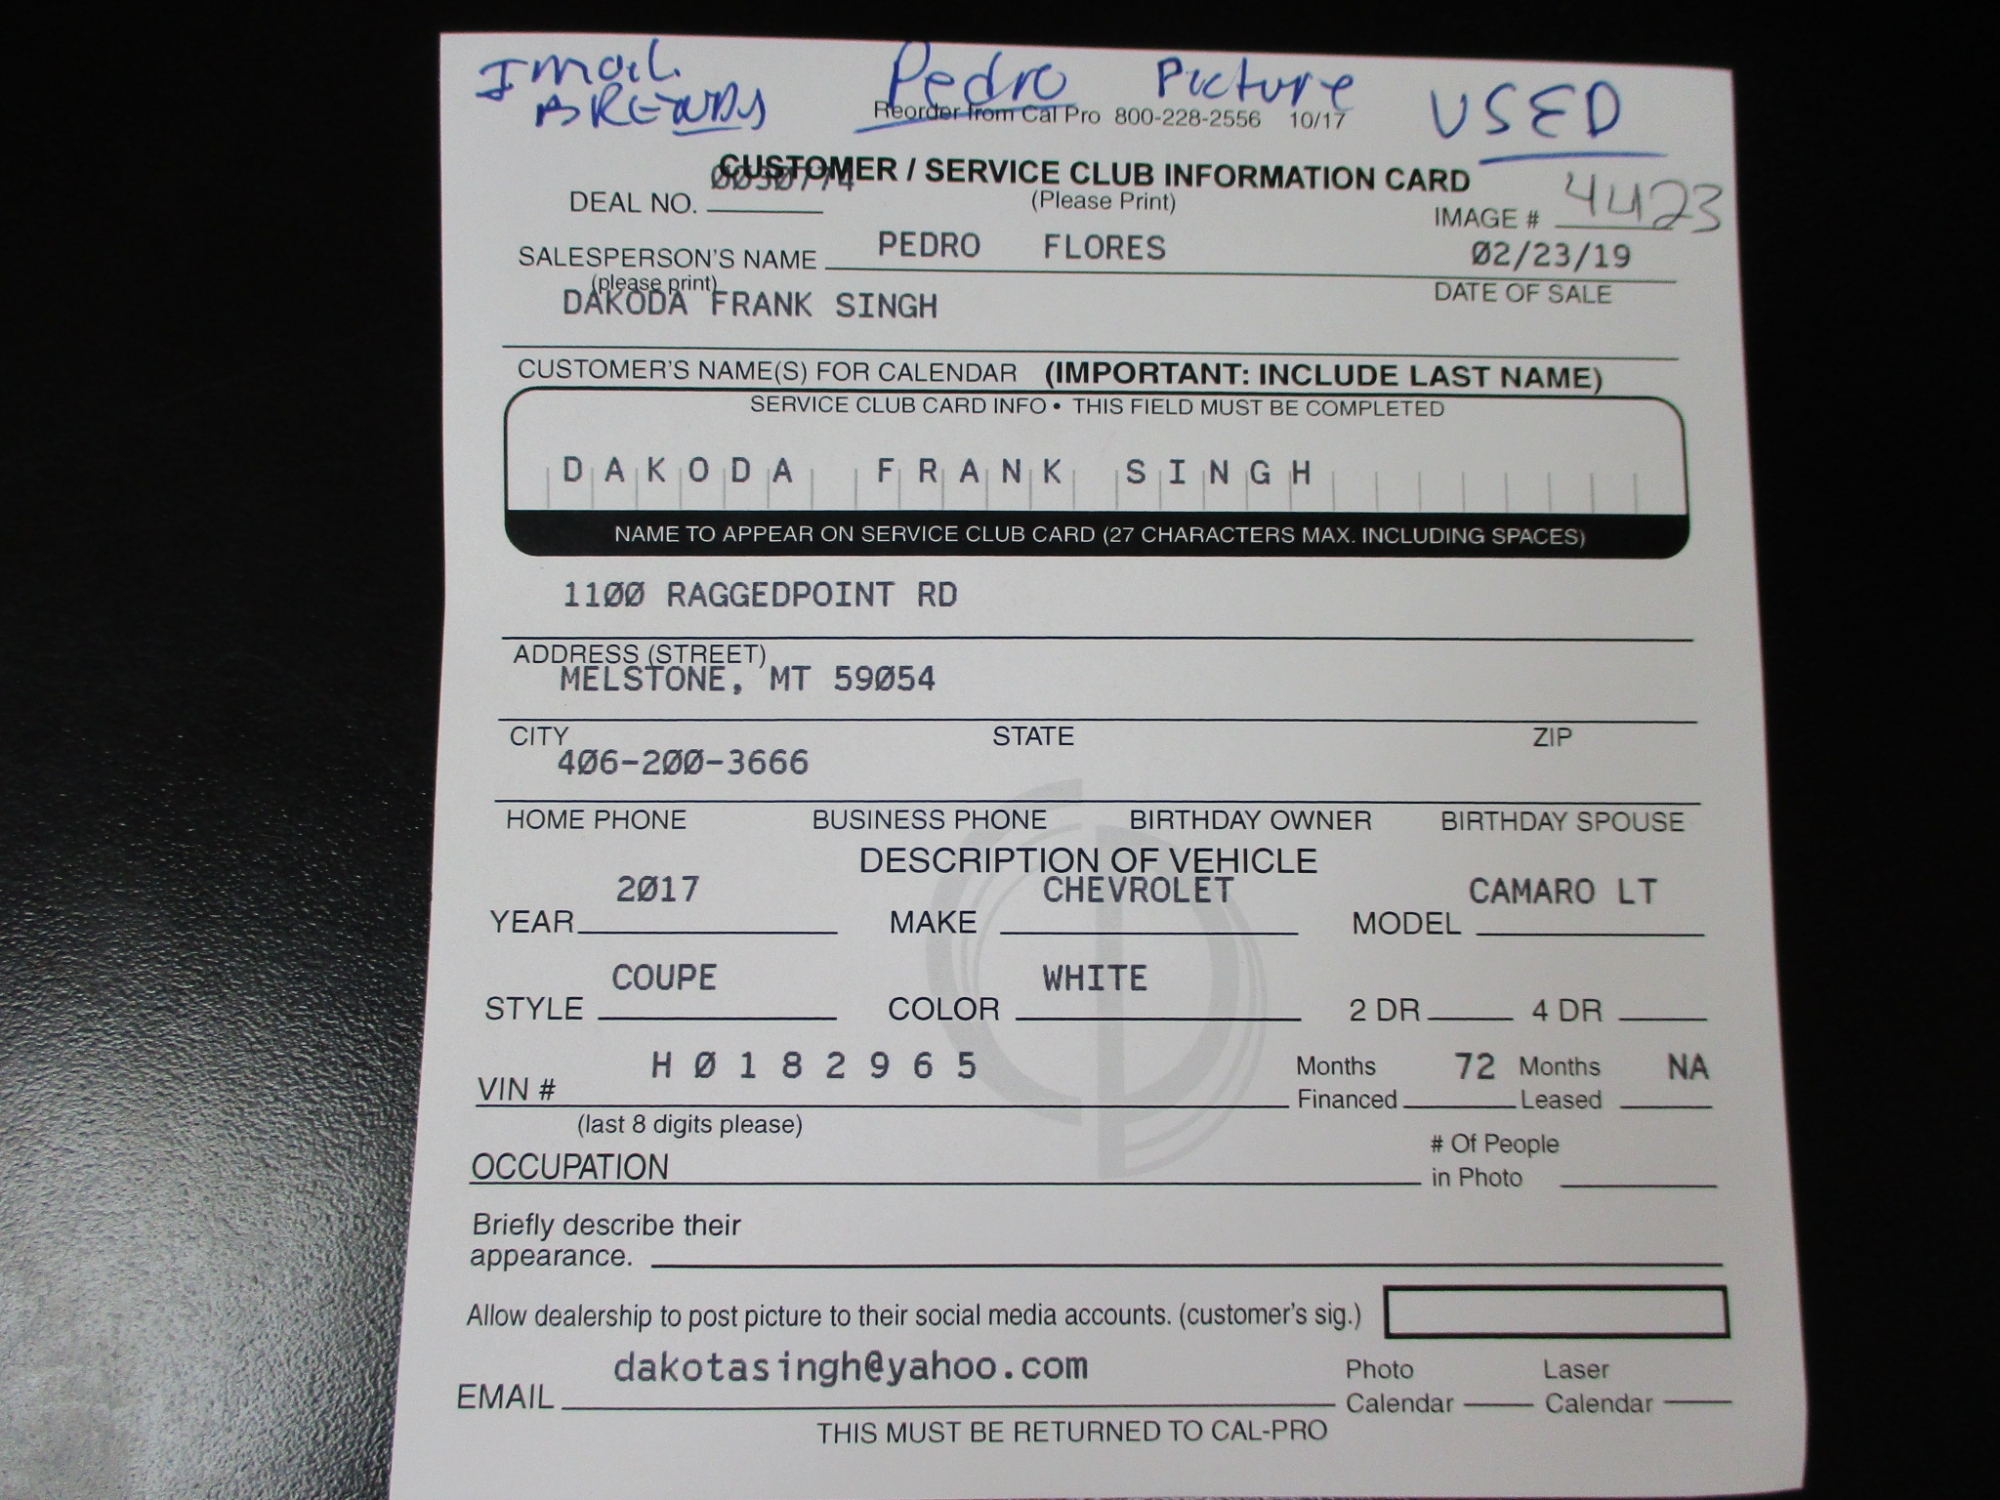 Imail Pedro Picture USED
BRENDA
Reorder from Cal Pro 800-228-2556 10/17
CUSTOMER / SERVICE CLUB INFORMATION CARD
DEAL NO. 0030774 (Please Print) IMAGE # 4423
SALESPERSON'S NAME PEDRO FLORES 02/23/19
(please print) DATE OF SALE
DAKODA FRANK SINGH
CUSTOMER'S NAME(S) FOR CALENDAR (IMPORTANT: INCLUDE LAST NAME)
SERVICE CLUB CARD INFO • THIS FIELD MUST BE COMPLETED
DAKODA FRANK SINGH
NAME TO APPEAR ON SERVICE CLUB CARD (27 CHARACTERS MAX. INCLUDING SPACES)
1100 RAGGEDPOINT RD
ADDRESS (STREET)
MELSTONE, MT 59054
CITY STATE ZIP
406-200-3666
HOME PHONE BUSINESS PHONE BIRTHDAY OWNER BIRTHDAY SPOUSE
DESCRIPTION OF VEHICLE
YEAR 2017 MAKE CHEVROLET MODEL CAMARO LT
STYLE COUPE COLOR WHITE 2 DR 4 DR
VIN # H0182965 Months Financed 72 Months Leased NA
(last 8 digits please)
OCCUPATION # Of People in Photo
Briefly describe their
appearance.
Allow dealership to post picture to their social media accounts. (customer's sig.)
EMAIL dakotasingh@yahoo.com Photo Calendar Laser Calendar
THIS MUST BE RETURNED TO CAL-PRO